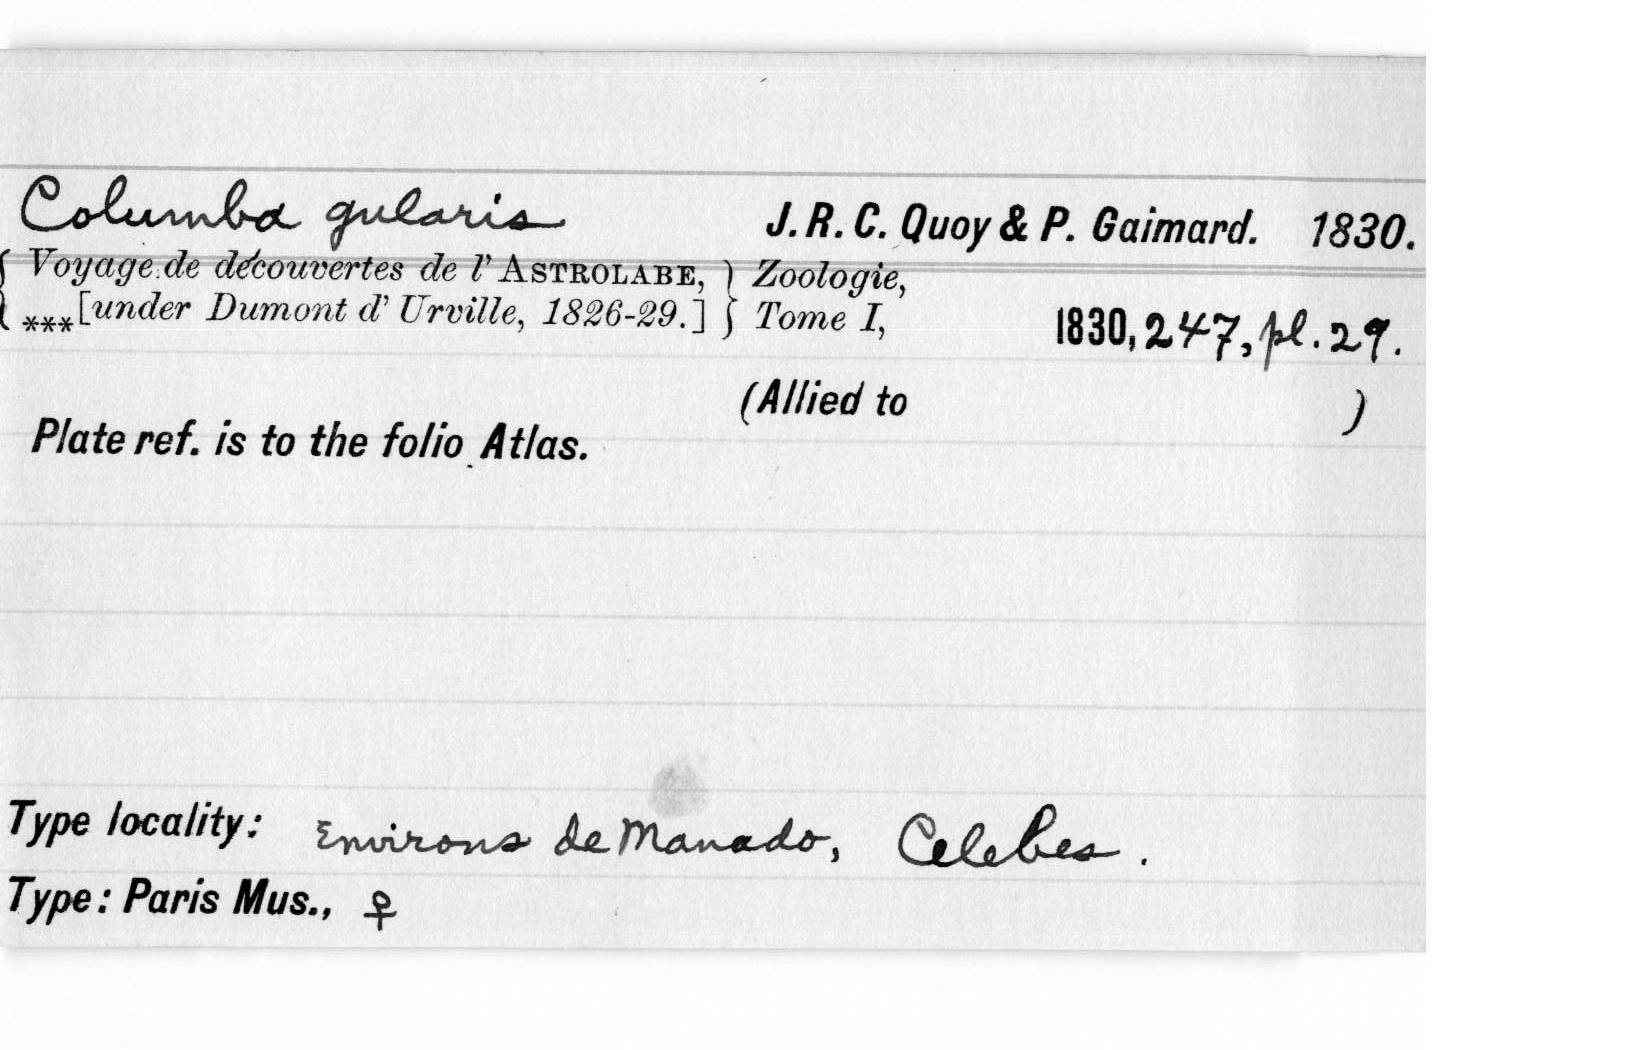 Columba gularis J. R. C. Quoy & P. Gaimard. 1830.
{ Voyage de découvertes de l' ASTROLABE, } Zoologie,
{ ***[under Dumont d' Urville, 1826-29.] } Tome I, 1830, 247, pl. 29.
(Allied to )
Plate ref. is to the folio Atlas.
Type locality: Environs de Manado, Celebes.
Type: Paris Mus., ♀